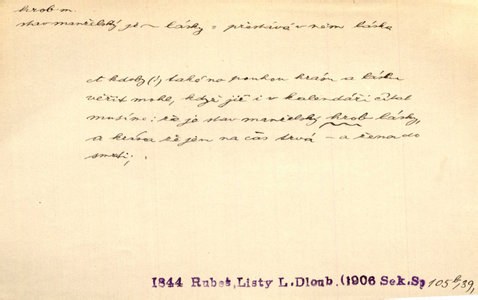 hrob m.
stav manželský je ~ lásky = přestává v něm láska
A kdoby (!) také na pouhou krásu a lásku
věřit mohl, když již i v kalendáři čítat
musíme: že jo stav manželský hrob lásky,
a krása že jen na čas trvá – a žena do
smrti;
1844 Rubeš, Listy L. Dloub. (1906 Sek.Sp 105b, 39,